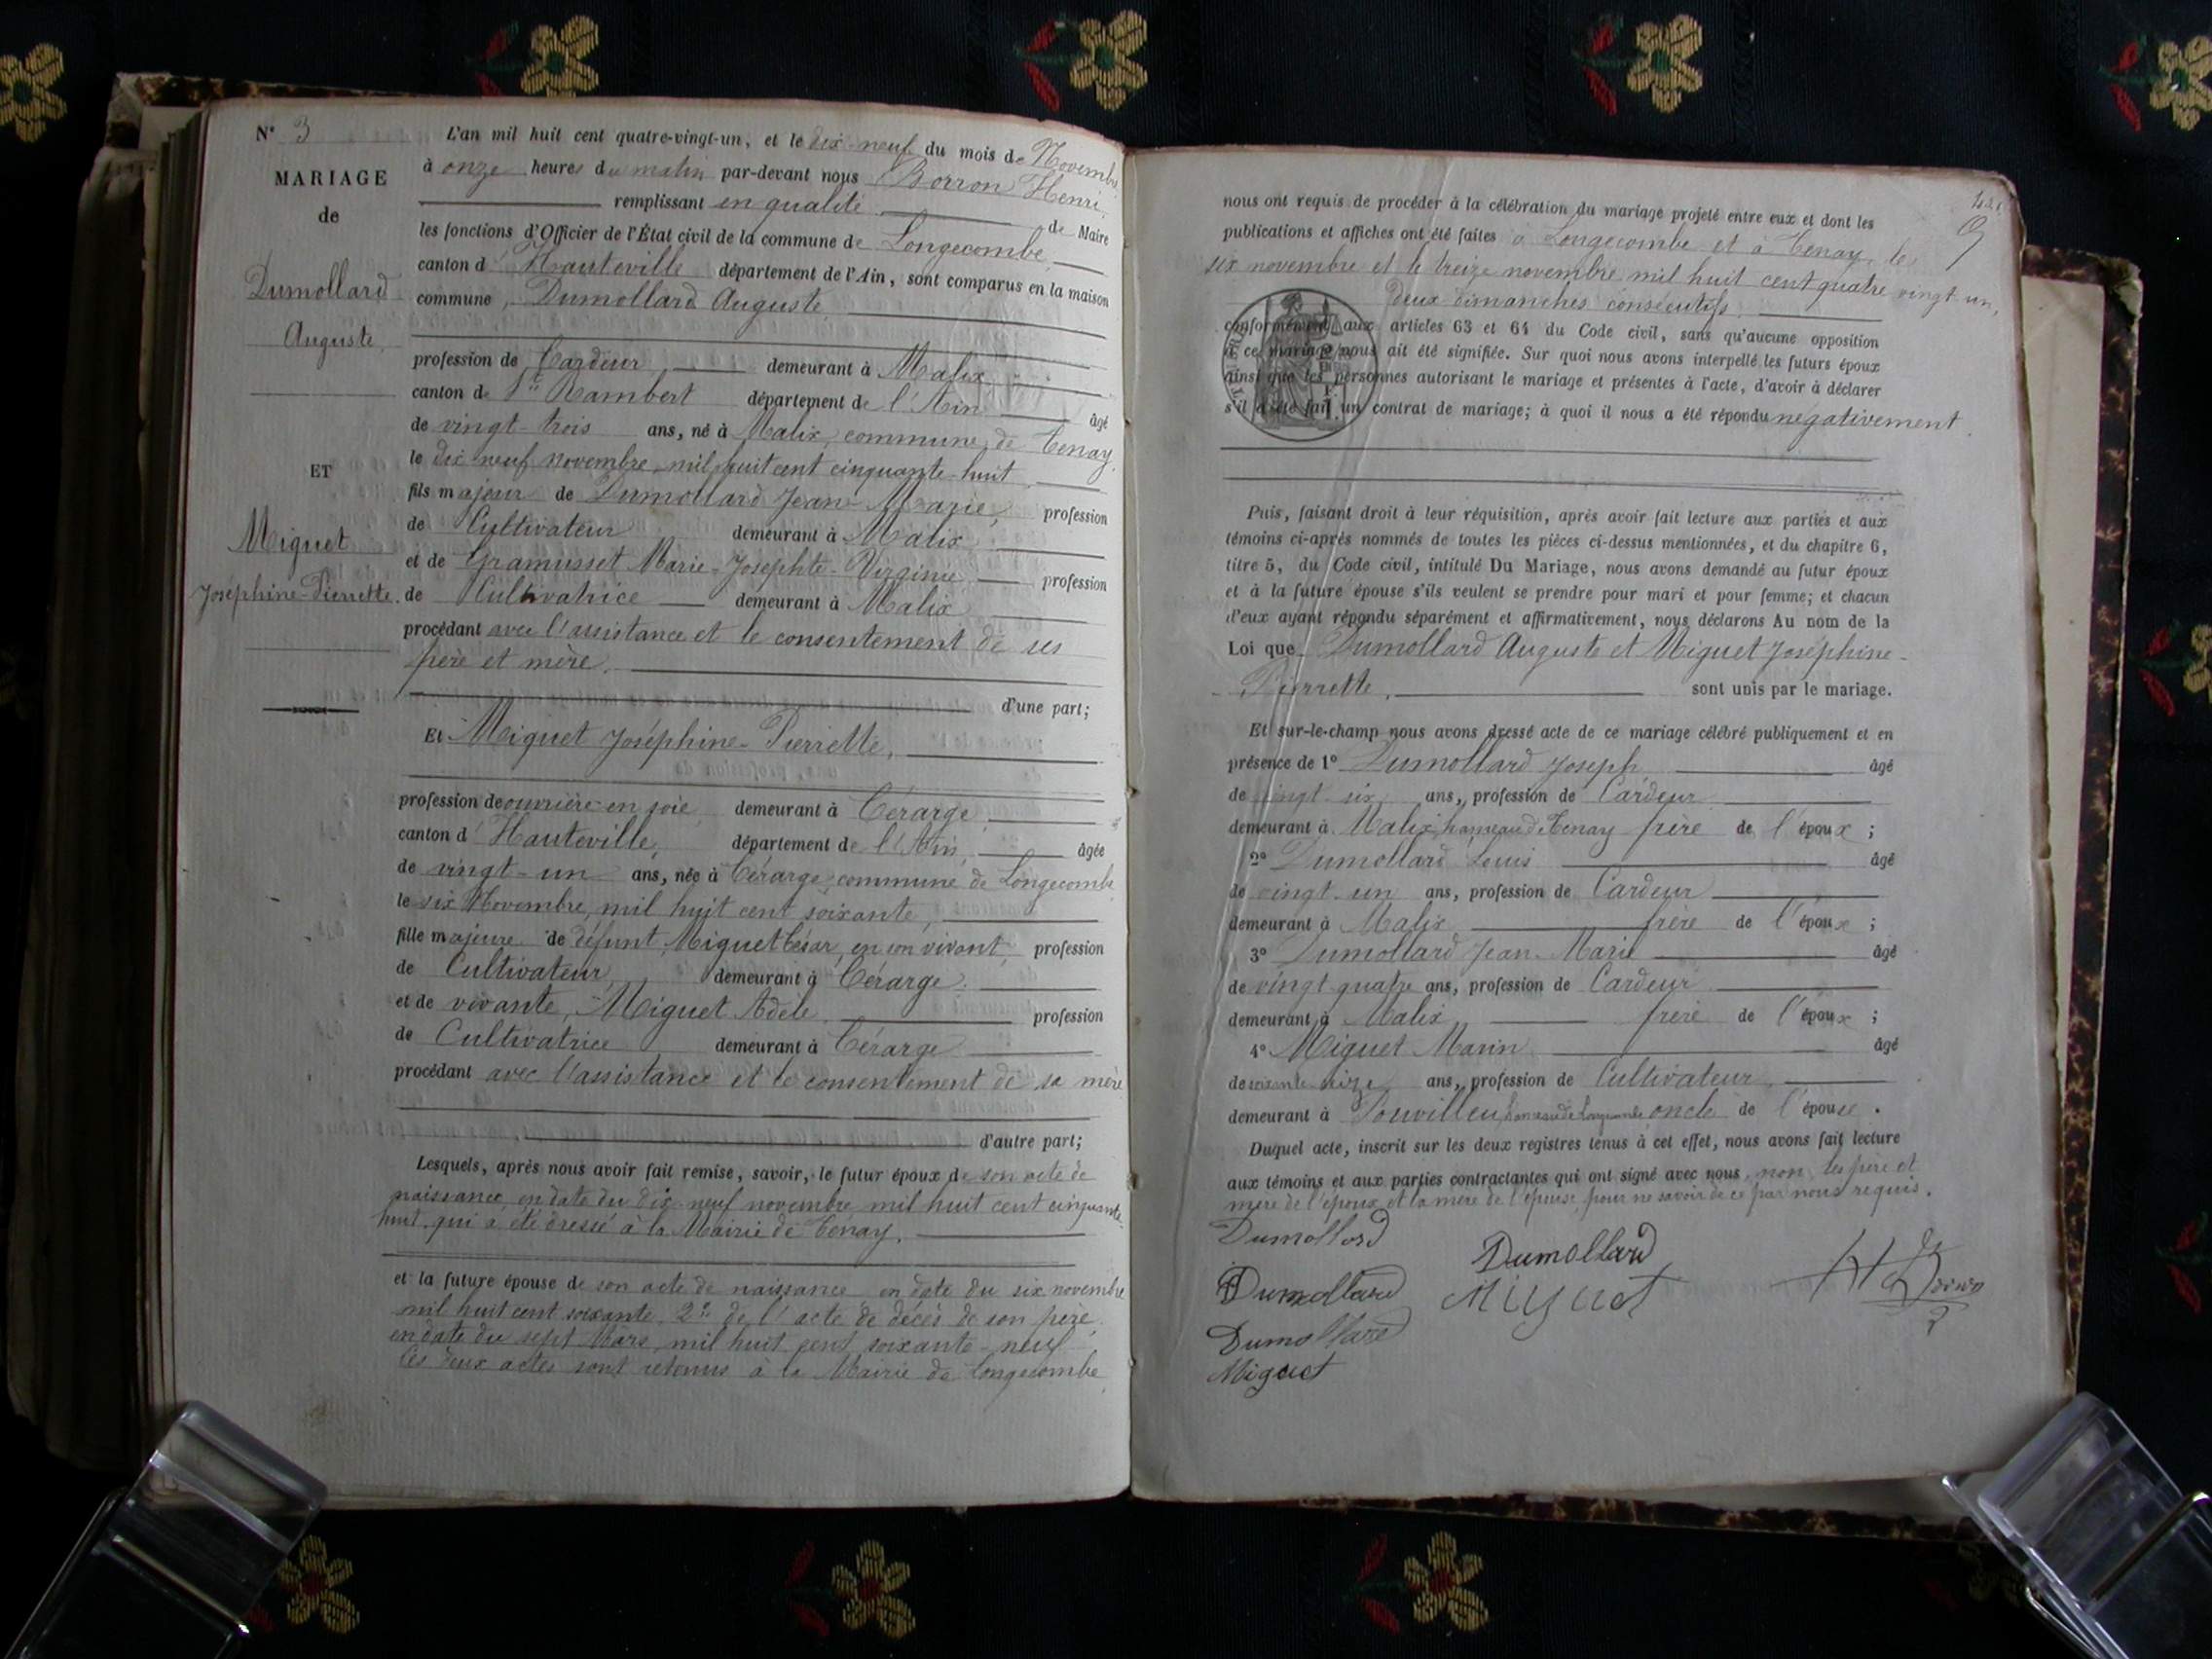 N° 3
MARIAGE
de
Dumollard
Auguste
ET
Miguet
Joséphine-Pierrette.
L'an mil huit cent quatre-vingt-un, et le dix-neuf du mois de Novembre
à onze heures du matin par-devant nous Borron Henri,
remplissant en qualité de Maire
les fonctions d'Officier de l'État civil de la commune de Longecombe
canton d'Hauteville département de l'Ain, sont comparus en la maison
commune, Dumollard Auguste
profession de Cardeur demeurant à Malix
canton de St Rambert département de l'Ain âgé
de vingt-trois ans, né à Malix, commune de Tenay,
le dix-neuf novembre mil huit cent cinquante-huit
fils majeur de Dumollard Jean-Marie, profession
de Cultivateur demeurant à Malix
et de Gramusset Marie-Josephte-Virginie profession
de Cultivatrice demeurant à Malix
procédant avec l'assistance et le consentement de ses
père et mère.
d'une part;
Et Miguet Joséphine-Pierrette,
profession de ouvrière en soie demeurant à Cérarge
canton d'Hauteville, département de l'Ain, âgée
de vingt-un ans, née à Cérarge, commune de Longecombe
le six Novembre, mil huit cent soixante
fille majeure de défunt Miguet César, en son vivant, profession
de Cultivateur demeurant à Cérarge.
et de vivante, Miguet Adèle profession
de Cultivatrice demeurant à Cérarge
procédant avec l'assistance et le consentement de sa mère
d'autre part;
Lesquels, après nous avoir fait remise, savoir, le futur époux de son acte de
naissance, en date du dix-neuf novembre mil huit cent cinquante-
huit, qui a été dressé à la Mairie de Tenay.
et la future épouse de son acte de naissance en date du six novembre
mil huit cent soixante, 2° de l'acte de décès de son père,
en date du sept Mars, mil huit cent soixante-neuf
Ces deux actes sont retenus à la Mairie de Longecombe
nous ont requis de procéder à la célébration du mariage projeté entre eux et dont les
publications et affiches ont été faites à Longecombe et à Tenay, le
six novembre et le treize novembre mil huit cent quatre vingt-un,
deux dimanches consécutifs.
conformément aux articles 63 et 64 du Code civil, sans qu'aucune opposition
à ce mariage nous ait été signifiée. Sur quoi nous avons interpellé les futurs époux
ainsi que les personnes autorisant le mariage et présentes à l'acte, d'avoir à déclarer
s'il a été fait un contrat de mariage; à quoi il nous a été répondu negativement.
Puis, faisant droit à leur réquisition, après avoir fait lecture aux parties et aux
témoins ci-après nommés de toutes les pièces ci-dessus mentionnées, et du chapitre 6,
titre 5, du Code civil, intitulé Du Mariage, nous avons demandé au futur époux
et à la future épouse s'ils veulent se prendre pour mari et pour femme; et chacun
d'eux ayant répondu séparément et affirmativement, nous déclarons Au nom de la
Loi que Dumollard Auguste et Miguet Joséphine-
Pierrette, sont unis par le mariage.
Et sur-le-champ nous avons dressé acte de ce mariage célébré publiquement et en
présence de 1° Dumollard Joseph âgé
de vingt six ans, profession de Cardeur
demeurant à Malix, hameau de Tenay frère de l'époux;
2° Dumollard Louis âgé
de vingt-un ans, profession de Cardeur
demeurant à Malix frère de l'époux;
3° Dumollard Jean-Marie âgé
de vingt-quatre ans, profession de Cardeur
demeurant à Malix frère de l'époux;
4° Miguet Marin âgé
de soixante ans, profession de Cultivateur
demeurant à hameau de Longecombe oncle de l'épouse.
Duquel acte, inscrit sur les deux registres tenus à cet effet, nous avons fait lecture
aux témoins et aux parties contractantes qui ont signé avec nous, non les père et
mère de l'époux et la mère de l'épouse, pour ne savoir de ce par nous requis.
Dumollard
Dumollard
Dumollard
Miguet
Dumollard
Miguet